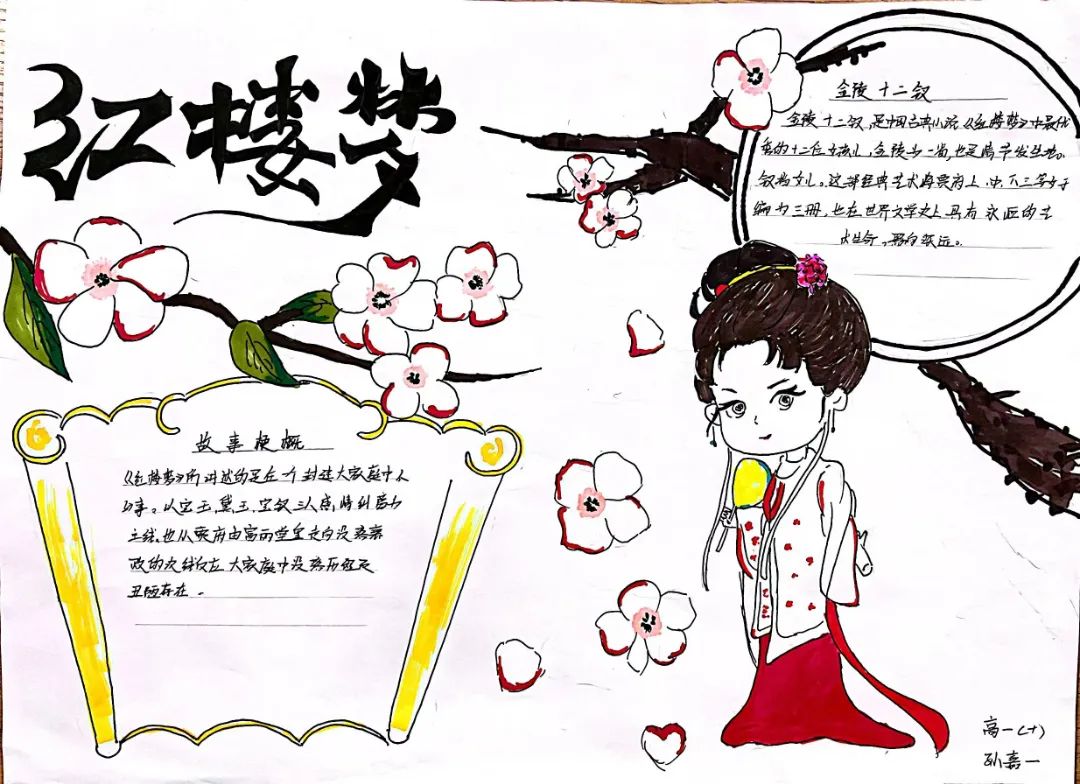 红楼梦
金陵十二钗
金陵十二钗,是中国古典小说《红楼梦》中最优
秀的十二位女孩儿,金陵为一省,也是
钗为女儿。这部经典艺术将贾府上、中、下三等女子
编为三册,也在世界文学史上具有永恒的艺
术生命,
故事梗概
《红楼梦》所讲述的是在一个封建大家庭中人
事。以宝玉、黛玉、宝钗三人感情纠葛为
主线,也从贾府由富丽堂皇走向没落衰
败的次线 大家庭中没落历程及
丑陋存在。
高一(十)
孙嘉一